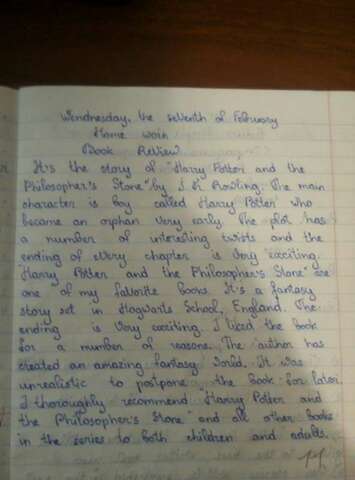 Wendnesday, the seventh of February
Home work
Book Review
It's the story of "Harry Potter and the
Philosopher's Stone" by J. K. Rowling. The main
character is boy called Harry Potter who
became an orphan very early. The plot has
a number of interesting twists and the
ending of every chapter is very exciting.
Harry Potter and the Philosopher's Stone are
one of my favorite books. It's a fantasy
story set in Hogwarts School, England. The
ending is very exciting. I liked the book
for a number of reasons. The author has
created an amazing fantasy world. It was
unrealistic to postpone the book for later.
I thoroughly recommend "Harry Potter and
the Philosopher's Stone" and all other books
in the series to both children and adults.